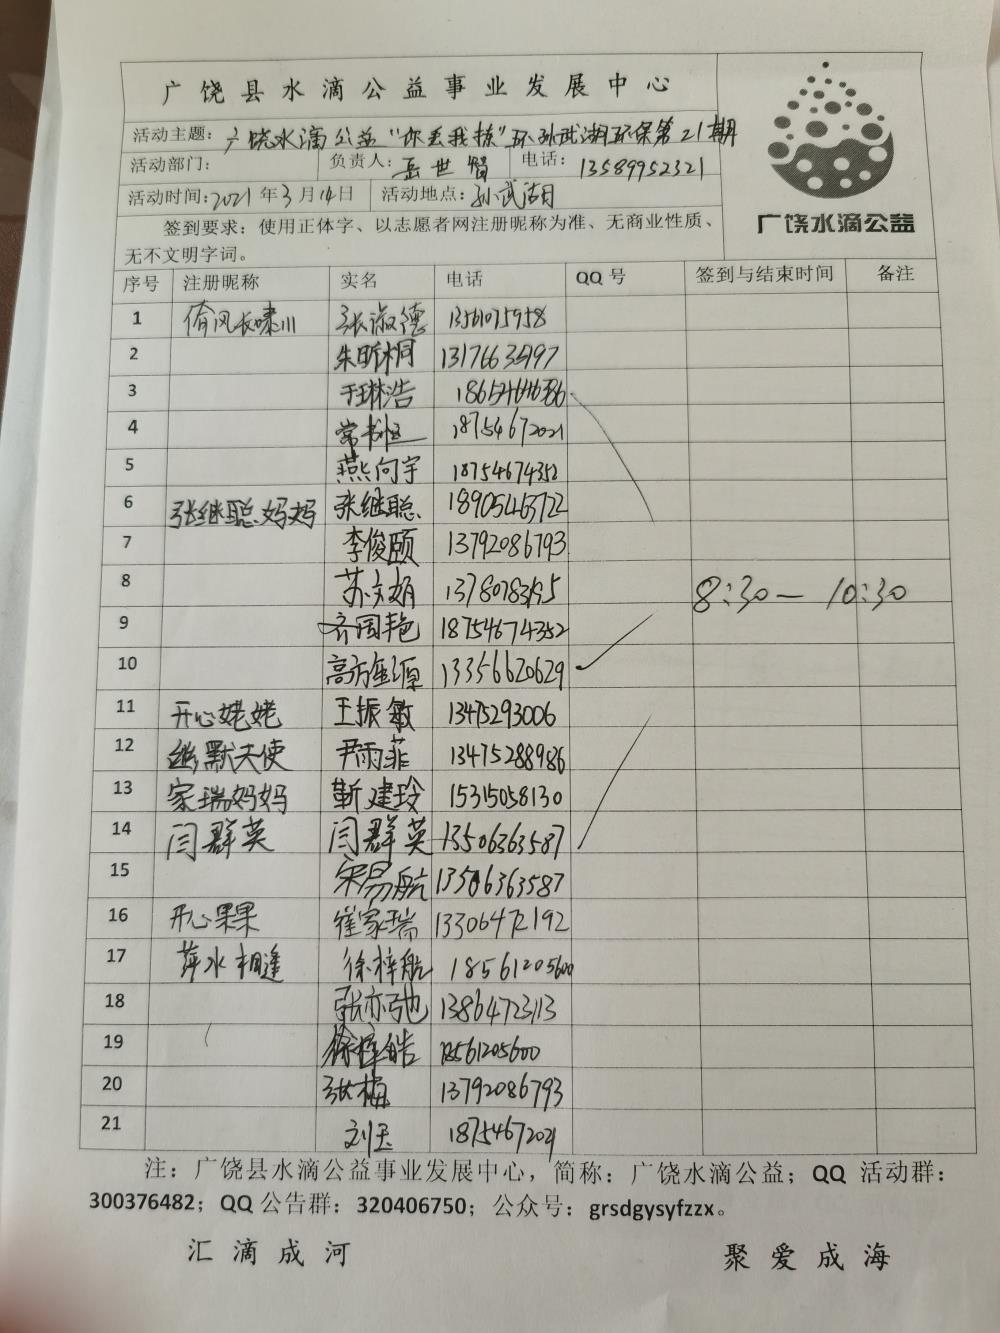 广饶县水滴公益事业发展中心
活动主题：广饶水滴公益“你丢我捡”环孙武湖环保第21期
活动部门： 负责人：岳世智 电话：13589952321
活动时间：2021年3月14日 活动地点：孙武湖
签到要求：使用正体字、以志愿者网注册昵称为准、无商业性质、
无不文明字词。
广饶水滴公益
序号 注册昵称 实名 电话 QQ 号 签到与结束时间 备注
1 倚风长啸川 张淑德 13561075958
2 朱昕桐
3 于琳浩
4 18754672021
5 燕向宇 18754674352
6 张继聪妈妈 张继聪 18905463722
7 李俊颐 13792086793
8 苏文娟 8:30— 10:30
9 齐国艳 18754674352
10 13356620629
11 开心姥姥 王振敏 13475293006
12 幽默天使 尹雨菲 13475288986
13 家瑞妈妈 靳建玲 15315058130
14 闫群英 闫群英 13506363587
15 宋易航 13506363587
16 开心果果 崔家瑞 13306472192
17 萍水相逢 徐梓航 18561205600
18 张亦弛
19 徐梓皓 18561205600
20 张梅 13792086793
21 刘玉 18754672021
注：广饶县水滴公益事业发展中心，简称：广饶水滴公益；QQ 活动群：
300376482；QQ 公告群：320406750；公众号：grsdgysyfzzx。
汇滴成河 聚爱成海